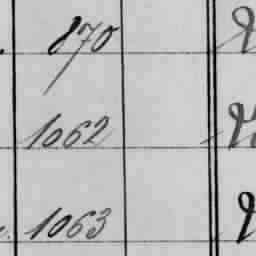 870
1062
1063